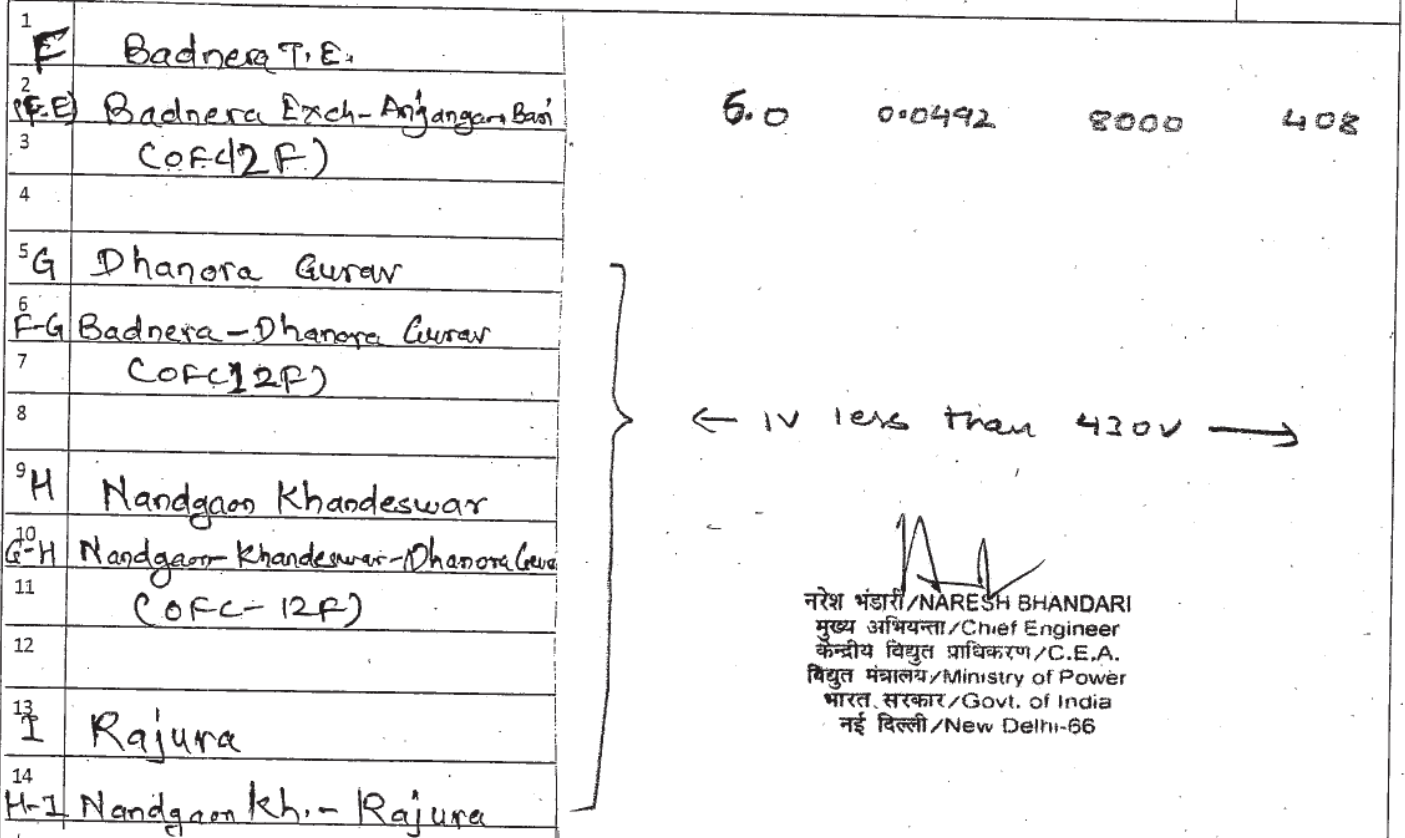 1
F Badnera T.E.
2
(F-E) Badnera Exch-Anjangaon Bari 6.0 0.0492 8000 408
3 (OFC12F)
4
5 G Dhanora Gurav
6
F-G Badnera-Dhanora Gurav
7 (OFC12F)
8
← IV less than 430V →
9 H Nandgaon Khandeswar
10
G-H Nandgaon-Khandeswar-Dhanora Gurav
11 (OFC-12F)
12
13
I Rajura
14
H-I Nandgaon Kh.- Rajura
नरेश भंडारी/NARESH BHANDARI
मुख्य अभियन्ता/Chief Engineer
केन्द्रीय विद्युत प्राधिकरण/C.E.A.
विद्युत मंत्रालय/Ministry of Power
भारत सरकार/Govt. of India
नई दिल्ली/New Delhi-66